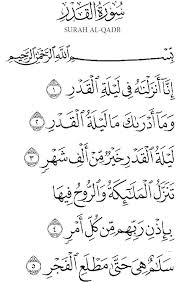 سُورَةُ الْقَدْرِ
SURAH AL-QADR
بِسْمِ اللَّهِ الرَّحْمَٰنِ الرَّحِيمِ
إِنَّا أَنزَلْنَٰهُ فِى لَيْلَةِ الْقَدْرِ ١
وَمَا أَدْرَىٰكَ مَا لَيْلَةُ الْقَدْرِ ٢
لَيْلَةُ الْقَدْرِ خَيْرٌ مِّنْ أَلْفِ شَهْرٍ ٣
تَنَزَّلُ الْمَلَٰٓئِكَةُ وَالرُّوحُ فِيهَا
بِإِذْنِ رَبِّهِم مِّن كُلِّ أَمْرٍ ٤
سَلَٰمٌ هِىَ حَتَّىٰ مَطْلَعِ الْفَجْرِ ٥